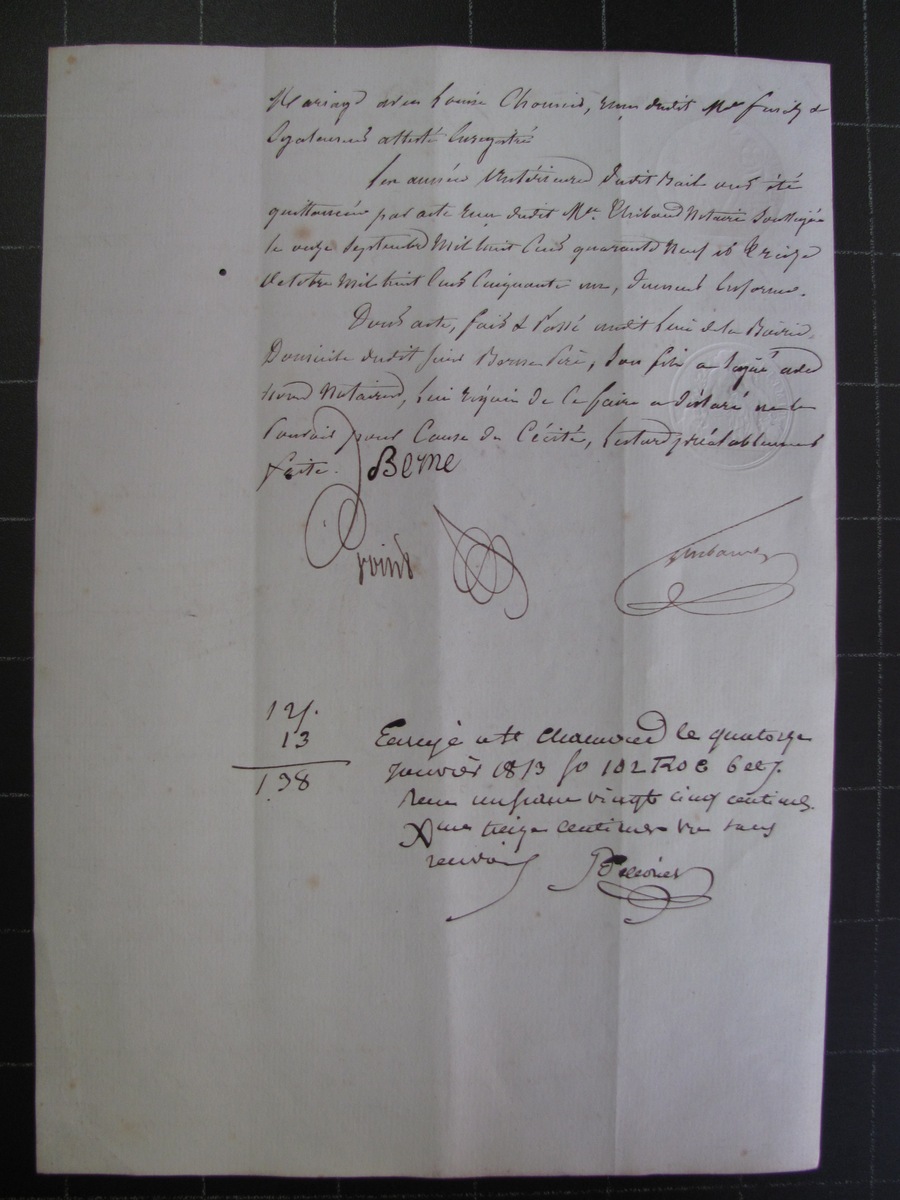 Mariage avec Louise Chomier, reçu dudit Me Finely &
légalement attesté Enregistré
Les années antérieures dudit Bail ont été
quittancées par acte reçu dudit Me. Thibaud Notaire Soussigné
le onze Septembre Mil huit Cent quarante Neuf et treize
Octobre Mil huit Cent Cinquante un, dument en forme.
Dont acte, fait & Passé audit lieu de la
Domicile dudit sieur Berne Père, Son fils a signé avec
Nous Notaires, lui requis de le faire a déclaré ne le
Pouvoir pour Cause de Cécité, lecture préalablement
faite. Berne
Point
Thibaud
1 25.
13
1.38
Enregé à St Chamond le quatorze
Janvier 1853 fo 102 Ro C 6 et 7.
Reçu un franc vingt cinq centimes.
Xme treize centimes vu sans
renvoi